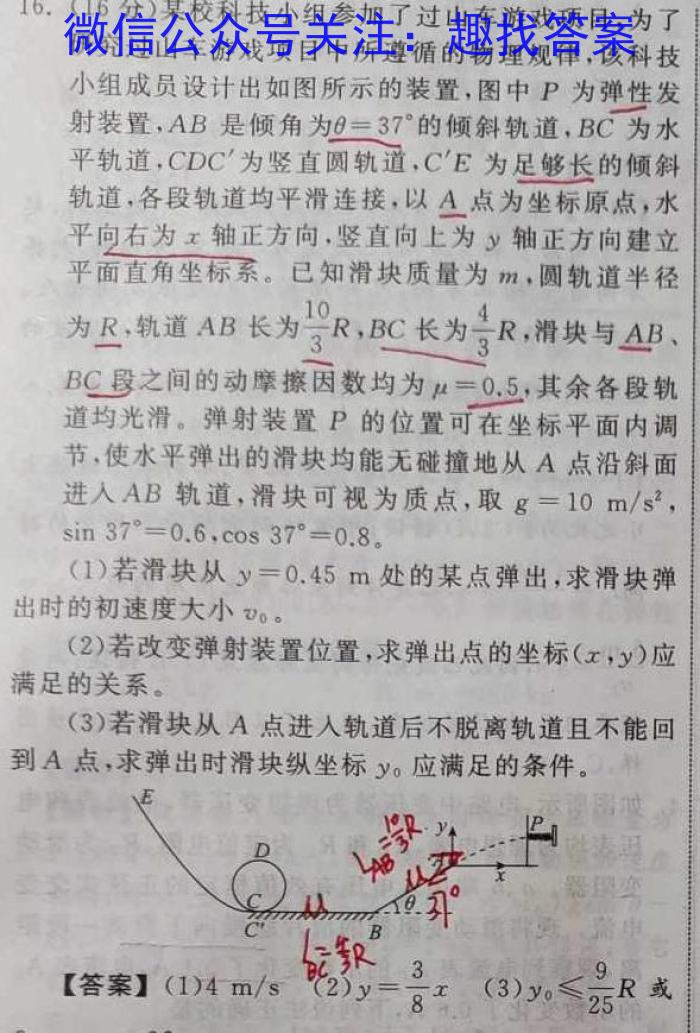 16. (16分)某校科技小组参加了过山车游戏项目,为了
微信公众号关注:趣找答案
究过山车游戏项目中所遵循的物理规律,该科技
小组成员设计出如图所示的装置,图中 P 为弹性发
射装置,AB 是倾角为θ=37°的倾斜轨道,BC 为水
平轨道,CDC′为竖直圆轨道,C′E 为足够长的倾斜
轨道,各段轨道均平滑连接,以 A 点为坐标原点,水
平向右为 x 轴正方向,竖直向上为 y 轴正方向建立
平面直角坐标系。已知滑块质量为 m,圆轨道半径
为 R,轨道 AB 长为10/3R,BC 长为4/3R,滑块与 AB、
BC 段之间的动摩擦因数均为 μ=0.5,其余各段轨
道均光滑。弹射装置 P 的位置可在坐标平面内调
节,使水平弹出的滑块均能无碰撞地从 A 点沿斜面
进入 AB 轨道,滑块可视为质点,取 g=10 m/s²,
sin 37°=0.6,cos 37°=0.8。
(1)若滑块从 y=0.45 m 处的某点弹出,求滑块弹
出时的初速度大小 v₀。
(2)若改变弹射装置位置,求弹出点的坐标(x,y)应
满足的关系。
(3)若滑块从 A 点进入轨道后不脱离轨道且不能回
到 A 点,求弹出时滑块纵坐标 y₀ 应满足的条件。
E
y
P
L_AB=10/3R
D
μ
x
C
μ
θ
37°
C′
B
L_BC=4/3R
【答案】(1)4 m/s (2)y=3/8x (3)y₀≤9/25R 或